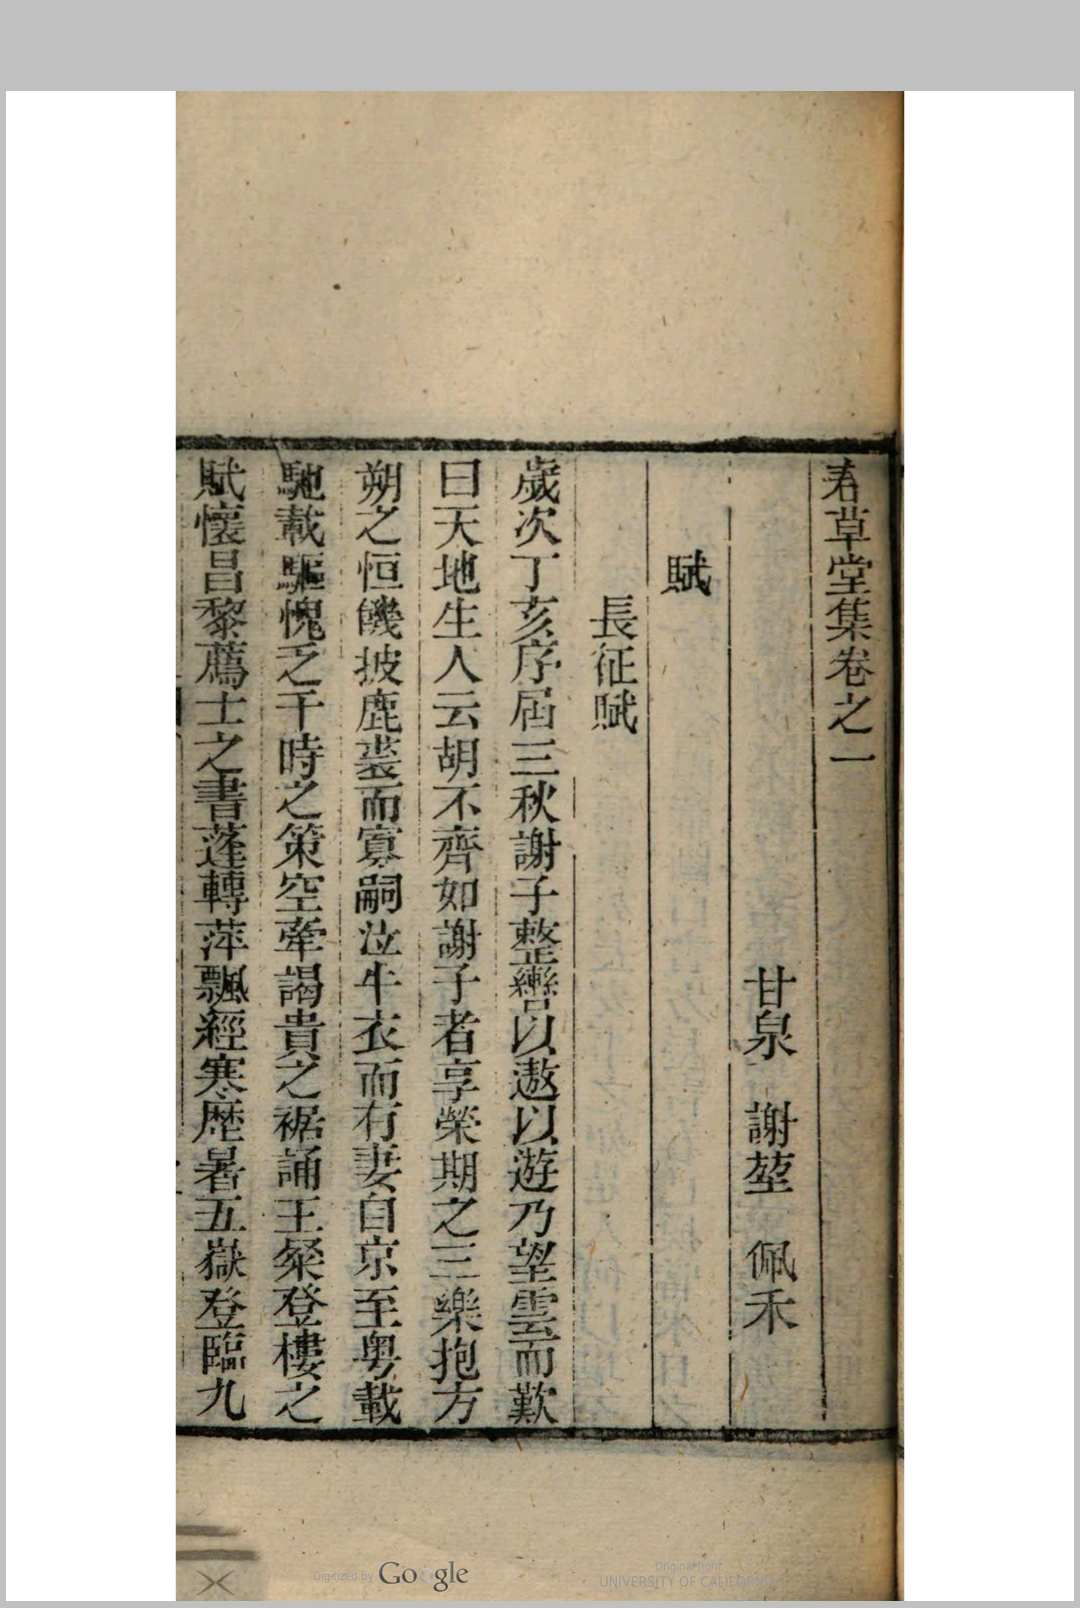 春草堂集卷之一
甘泉 謝堃 佩禾
賦
長征賦
歲次丁亥序屆三秋謝子整轡以遨以遊乃望雲而歎
曰天地生人云胡不齊如謝子者享榮期之三樂抱方
朔之恒饑披鹿裘而寡嗣泣牛衣而有妻自京至粵載
馳載驅愧乏干時之策空牽謁貴之裾誦王粲登樓之
賦懷昌黎薦士之書蓬轉萍飄經寒歷暑五嶽登臨九
Digitized by Google
Original from
UNIVERSITY OF CALIFORNIA